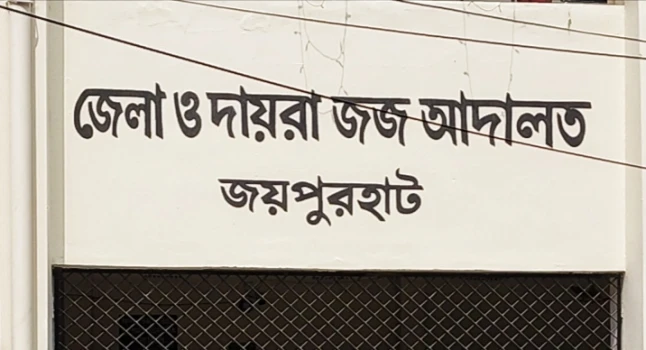 জেলা ও দায়রা জজ আদালত
জয়পুরহাট